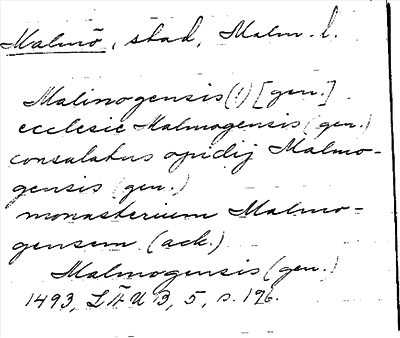 Malmö, stad, Malm. l.
Malmogensis (!) [gen.]
ecclesie Malmogensis (gen.)
consulatus opidij Malmo-
gensis (gen.)
monasterium Malmo-
gensem (ack.)
Malmogensis (gen.)
1493, LÄUB, 5, s. 196.